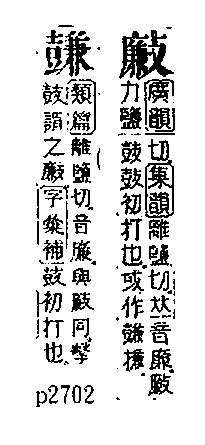 廣韻切集韻離鹽切𠀤音廉
力鹽鼓鼓初打也或作
類篇離鹽切音廉與同擊
鼓謂之字彙補鼓初打也
p2702